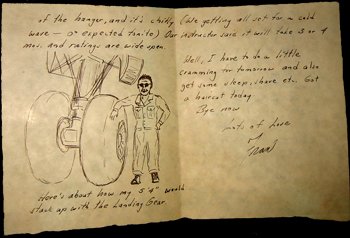 of the hanger, and it's chilly (We getting all set for a cold
wave — 0° expected tonite) Our instructor said it will take 3 or 4
mos. and ratings are wide open.
Well, I have to do a little
cramming for tomorrow and also
get some sleep, shave etc. Got
a haircut today
Bye now
Lots of Love
Here's about how my 5'4" would
stack up with the Landing Gear.